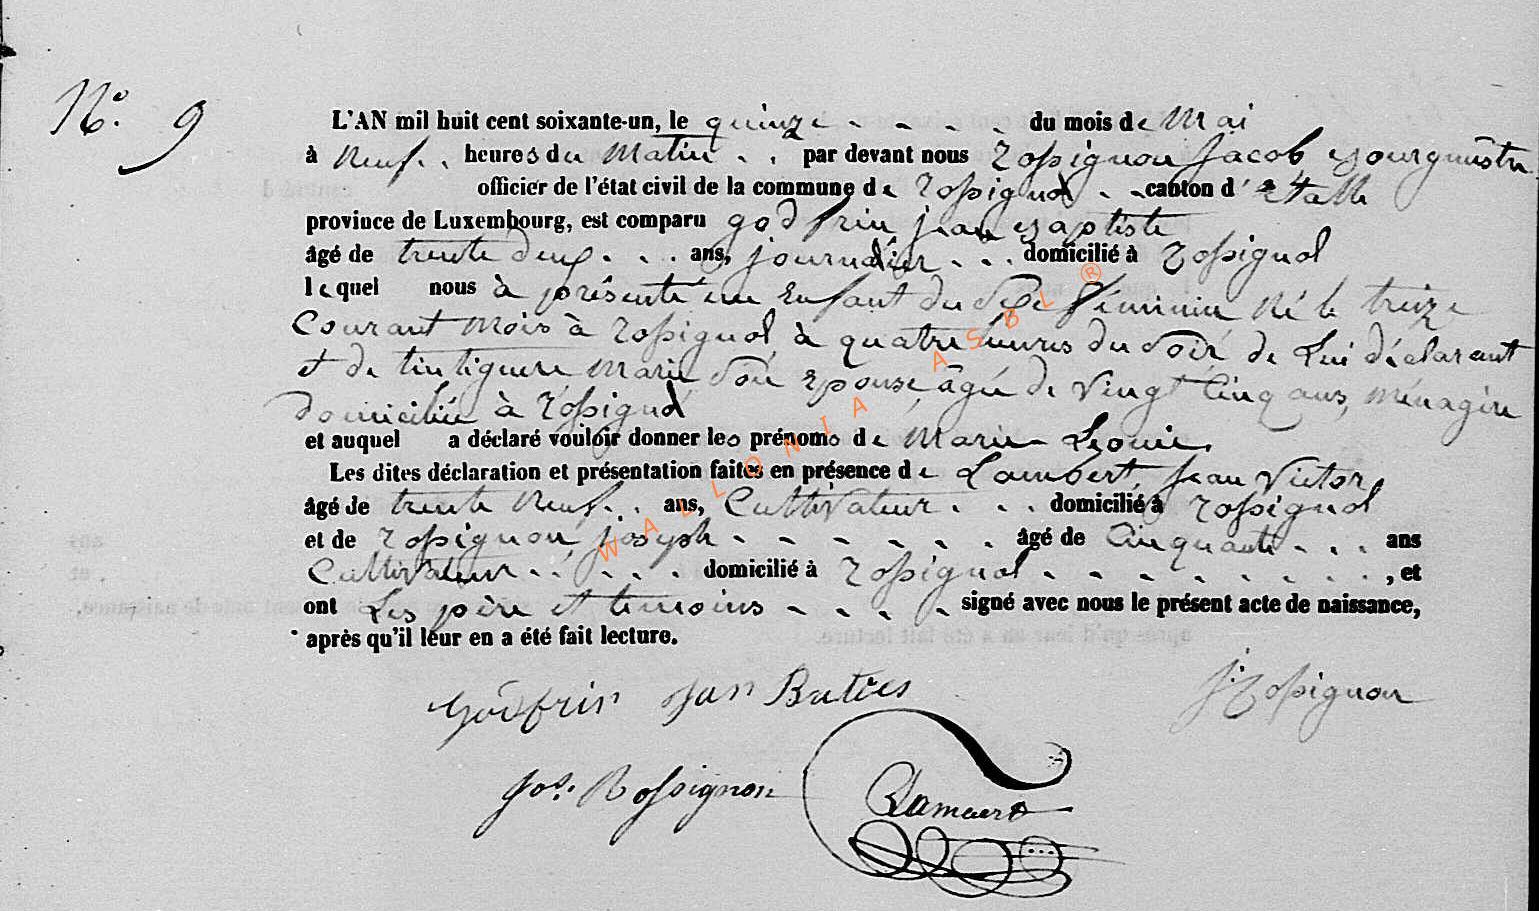 N.º 9
L'AN mil huit cent soixante-un, le quinze - - - - - du mois de Mai
à Neuf . . heures du Matin . . par devant nous Rossignon Jacob Bourgmestre
officier de l'état civil de la commune de Rossignol - - canton d'Etalle
province de Luxembourg, est comparu godfrin jean Baptiste
âgé de trente deux . . . ans, journalier . . . domicilié à Rossignol
lequel nous à présenté un Enfant du Sexe féminin Né le treize
Courant Mois à Rossignol à quatre heures du Soir de Lui déclarant
et de tintiguere Marie Son Epouse, âgée de Vingt Cinq ans, ménagère
domiciliée à Rossignol
et auquel a déclaré vouloir donner les prénoms de Marie Leonie.
Les dites déclaration et présentation faites en présence de Lambert, Jean Victor
âgé de trente Neuf . . ans, Cultivateur . . . domicilié à Rossignol
et de Rossignon, Joseph - - - - - - . âgé de Cinquante . . . ans
Cultivateur . . . . . domicilié à Rossignol . - - - - - . . . , et
ont Les père et temoins - - . . - signé avec nous le présent acte de naissance,
après qu'il leur en a été fait lecture.
Godfrin Jan Baties
J. Rossignon
Jos. Rossignon
Lambert
WALLONIA ASBL ®